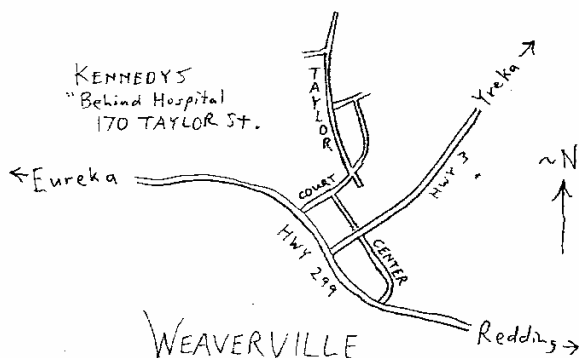 KENNEDYS
"Behind Hospital
170 TAYLOR St.
TAYLOR
Yreka
←Eureka
COURT
HWY 3
~N
HWY 299
CENTER
WEAVERVILLE
Redding→